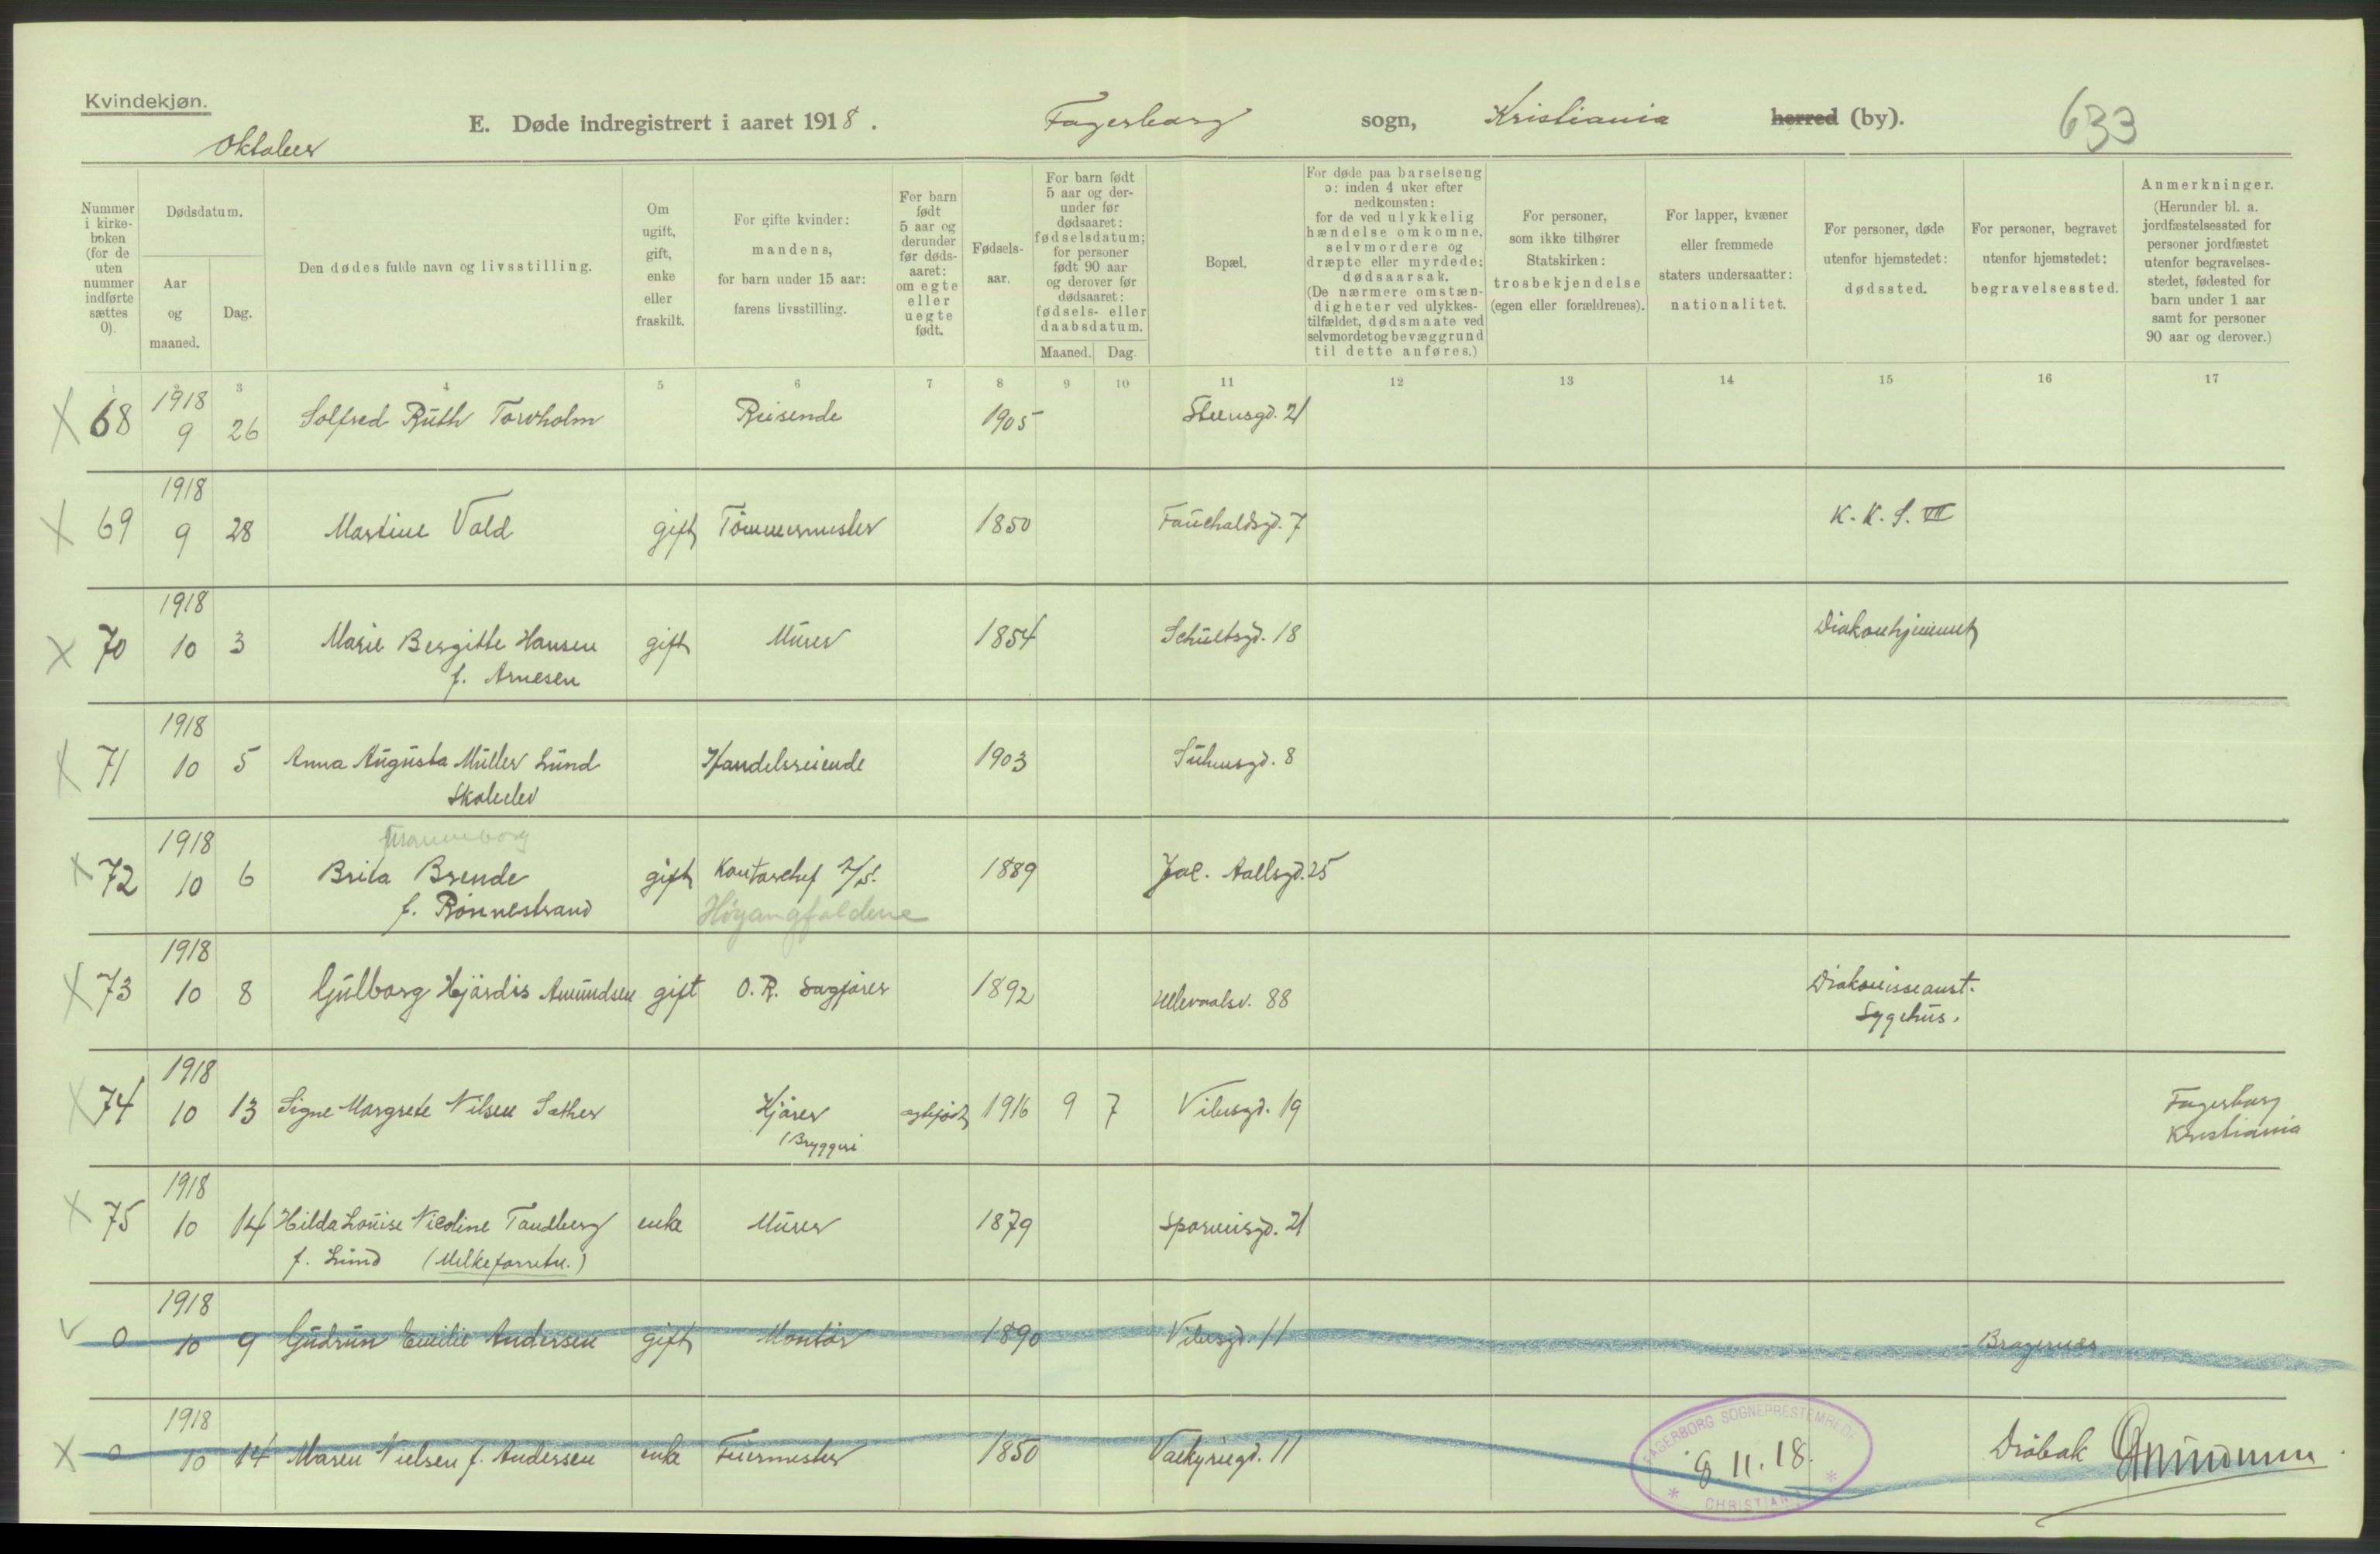 Kvindekjøn.
E. Døde indregistrert i aaret 1918. Fagerborg sogn, Kristiania herred (by). 633
Oktober
Nummer i kirke-boken (for de uten nummer indførte sættes 0).
Dødsdatum.
Aar og maaned.
Dag.
Den dødes fulde navn og livsstilling.
Om ugift, gift, enke eller fraskilt.
For gifte kvinder: mandens, for barn under 15 aar: farens livsstilling.
For barn født 5 aar og derunder før døds-aaret: om egte eller uegte født.
Fødsels-aar.
For barn født 5 aar og der-under før dødsaaret: fødselsdatum; for personer født 90 aar og derover før dødsaaret: fødsels- eller daabsdatum.
Maaned. Dag.
Bopæl.
For døde paa barselseng ɔ: inden 4 uker efter nedkomsten: for de ved ulykkelig hændelse omkomne, selvmordere og dræpte eller myrdede: dødsaarsak. (De nærmere omstæn-digheter ved ulykkes-tilfældet, dødsmaate ved selvmordet og bevæggrund til dette anføres.)
For personer, som ikke tilhører Statskirken: trosbekjendelse (egen eller forældrenes).
For lapper, kvæner eller fremmede staters undersaatter: nationalitet.
For personer, døde utenfor hjemstedet: dødssted.
For personer, begravet utenfor hjemstedet: begravelsessted.
Anmerkninger. (Herunder bl. a. jordfæstelsessted for personer jordfæstet utenfor begravelses-stedet, fødested for barn under 1 aar samt for personer 90 aar og derover.)
1 2 3 4 5 6 7 8 9 10 11 12 13 14 15 16 17
1918
68 9 26 Solfred Ruth Torvholm Reisende 1905 Steensgd. 21
1918
69 9 28 Martine Vold gift Tömmermester 1850 Fauchaldsgd. 7 K. K. S. VII
1918
70 10 3 Marie Bergitte Hansen gift Murer 1854 Schultsgd. 18 Diakonhjemmet
f. Arnesen
1918
71 10 5 Anna Augusta Müller Lund Handelsreisende 1903 Suhmsgd. 8
Skoleelev
1918
72 10 6 Brita Brende gift Kontorchef A/S. 1889 Jac. Aallsgd. 25
f. Rönnestrand Höyangfaldene
1918
73 10 8 Gulborg Hjördis Amundsen gift O.R. Sagförer 1892 Ullevaalsv. 88 Diakonisseanst.
Sygehus.
1918
74 10 13 Signe Margrete Nilsen Sæther Kjörer egtefödt 1916 9 7 Vibesgd. 19 Fagerborg
(Bryggeri Kristiania
1918
75 10 14 Hilda Louise Nicoline Tandberg enke Murer 1879 Sporveisgd. 21
f. Lund (Melkeforretn.)
1918
0 10 9 Gudrun Emilie Andersen gift Montör 1890 Vibesgd. 11 Bragernes
1918
0 10 14 Maren Nielsen f. Andersen enke Feiermester 1850 Valkyriegd. 11 Dröbak
FAGERBORG SOGNEPRESTEMBEDE
8.11.18.
* CHRISTIANIA *